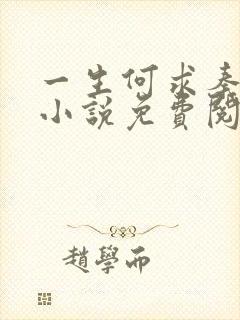 一生何求秦
小說免費閱
趙學而